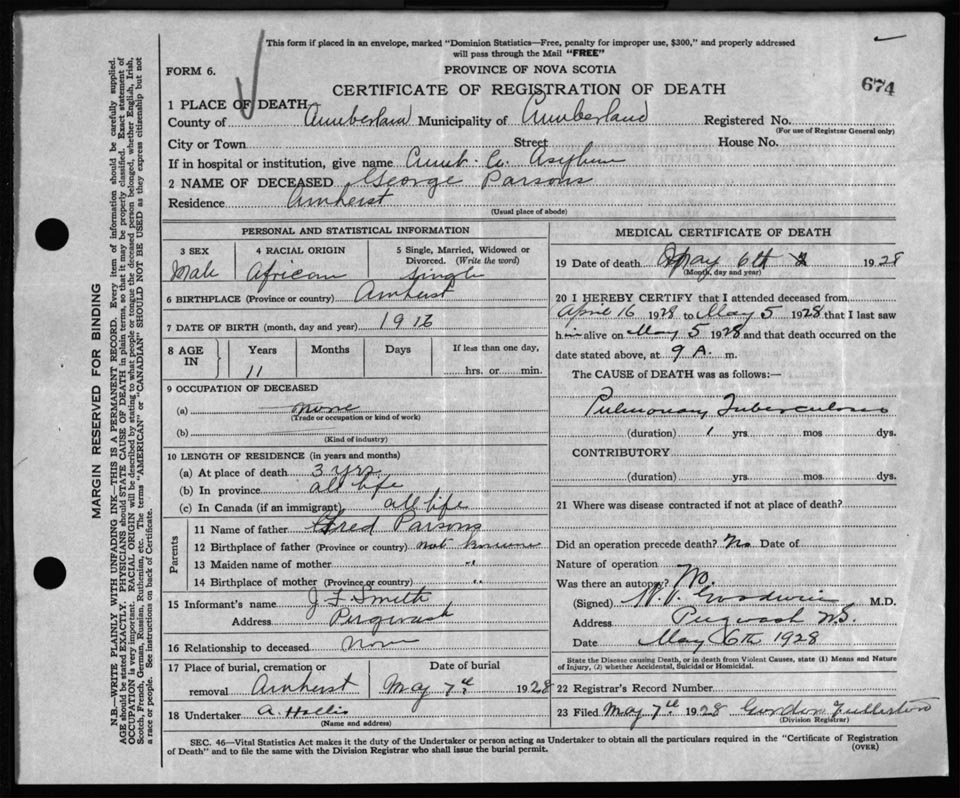 This form if placed in an envelope, marked "Dominion Statistics—Free, penalty for improper use, $300," and properly addressed
will pass through the Mail "FREE"
FORM 6.
PROVINCE OF NOVA SCOTIA
CERTIFICATE OF REGISTRATION OF DEATH
674
1 PLACE OF DEATH
County of Cumberland Municipality of Cumberland Registered No.
(For use of Registrar General only)
City or Town Street House No.
If in hospital or institution, give name Cumb. Co. Asylum
2 NAME OF DECEASED George Parsons
Residence Amherst
(Usual place of abode)
PERSONAL AND STATISTICAL INFORMATION
3 SEX 4 RACIAL ORIGIN 5 Single, Married, Widowed or
Divorced. (Write the word)
Male African Single
6 BIRTHPLACE (Province or country) Amherst
7 DATE OF BIRTH (month, day and year) 1916
8 AGE IN Years Months Days If less than one day,
11 hrs. or min.
9 OCCUPATION OF DECEASED
(a) none
(Trade or occupation or kind of work)
(b)
(Kind of industry)
10 LENGTH OF RESIDENCE (in years and months)
(a) At place of death 3 yrs
(b) In province all life
(c) In Canada (if an immigrant) all life
Parents
11 Name of father Fred Parsons
12 Birthplace of father (Province or country) not known
13 Maiden name of mother "
14 Birthplace of mother (Province or country) "
15 Informant's name J F Smith
Address Pugwash
16 Relationship to deceased None
17 Place of burial, cremation or Date of burial
removal Amherst May 7th 1928
18 Undertaker A. Hollis
(Name and address)
MEDICAL CERTIFICATE OF DEATH
19 Date of death May 6th 1928
(Month, day and year)
20 I HEREBY CERTIFY that I attended deceased from
April 16 1928 to May 5 1928 that I last saw
him alive on May 5 1928 and that death occurred on the
date stated above, at 9 A. m.
The CAUSE of DEATH was as follows:—
Pulmonary Tuberculosis
(duration) 1 yrs mos dys.
CONTRIBUTORY
(duration) yrs. mos. dys.
21 Where was disease contracted if not at place of death?
Did an operation precede death? No Date of
Nature of operation
Was there an autopsy? No.
(Signed) Goodwin M.D.
Address Pugwash N.S.
Date May 6th 1928
State the Disease causing Death, or in death from Violent Causes, state (1) Means and Nature
of Injury, (2) whether Accidental, Suicidal or Homicidal.
22 Registrar's Record Number
23 Filed May 7th 1928 Gordon Fullerton
(Division Registrar)
SEC. 46—Vital Statistics Act makes it the duty of the Undertaker or person acting as Undertaker to obtain all the particulars required in the "Certificate of Registration
of Death" and to file the same with the Division Registrar who shall issue the burial permit.
(OVER)
MARGIN RESERVED FOR BINDING
N.B.—WRITE PLAINLY WITH UNFADING INK—THIS IS A PERMANENT RECORD. Every item of information should be carefully supplied.
AGE should be stated EXACTLY. PHYSICIANS should STATE CAUSE OF DEATH in plain terms, so that it may be properly classified. Exact statement of
OCCUPATION is very important. RACIAL ORIGIN will be described by stating to what people or tongue the deceased person belonged, whether English, Irish,
Scotch, French, German, Russian, Ruthenian, etc. The terms "AMERICAN" or "CANADIAN" SHOULD NOT BE USED as they express citizenship but not
a race or people. See instructions on back of Certificate.